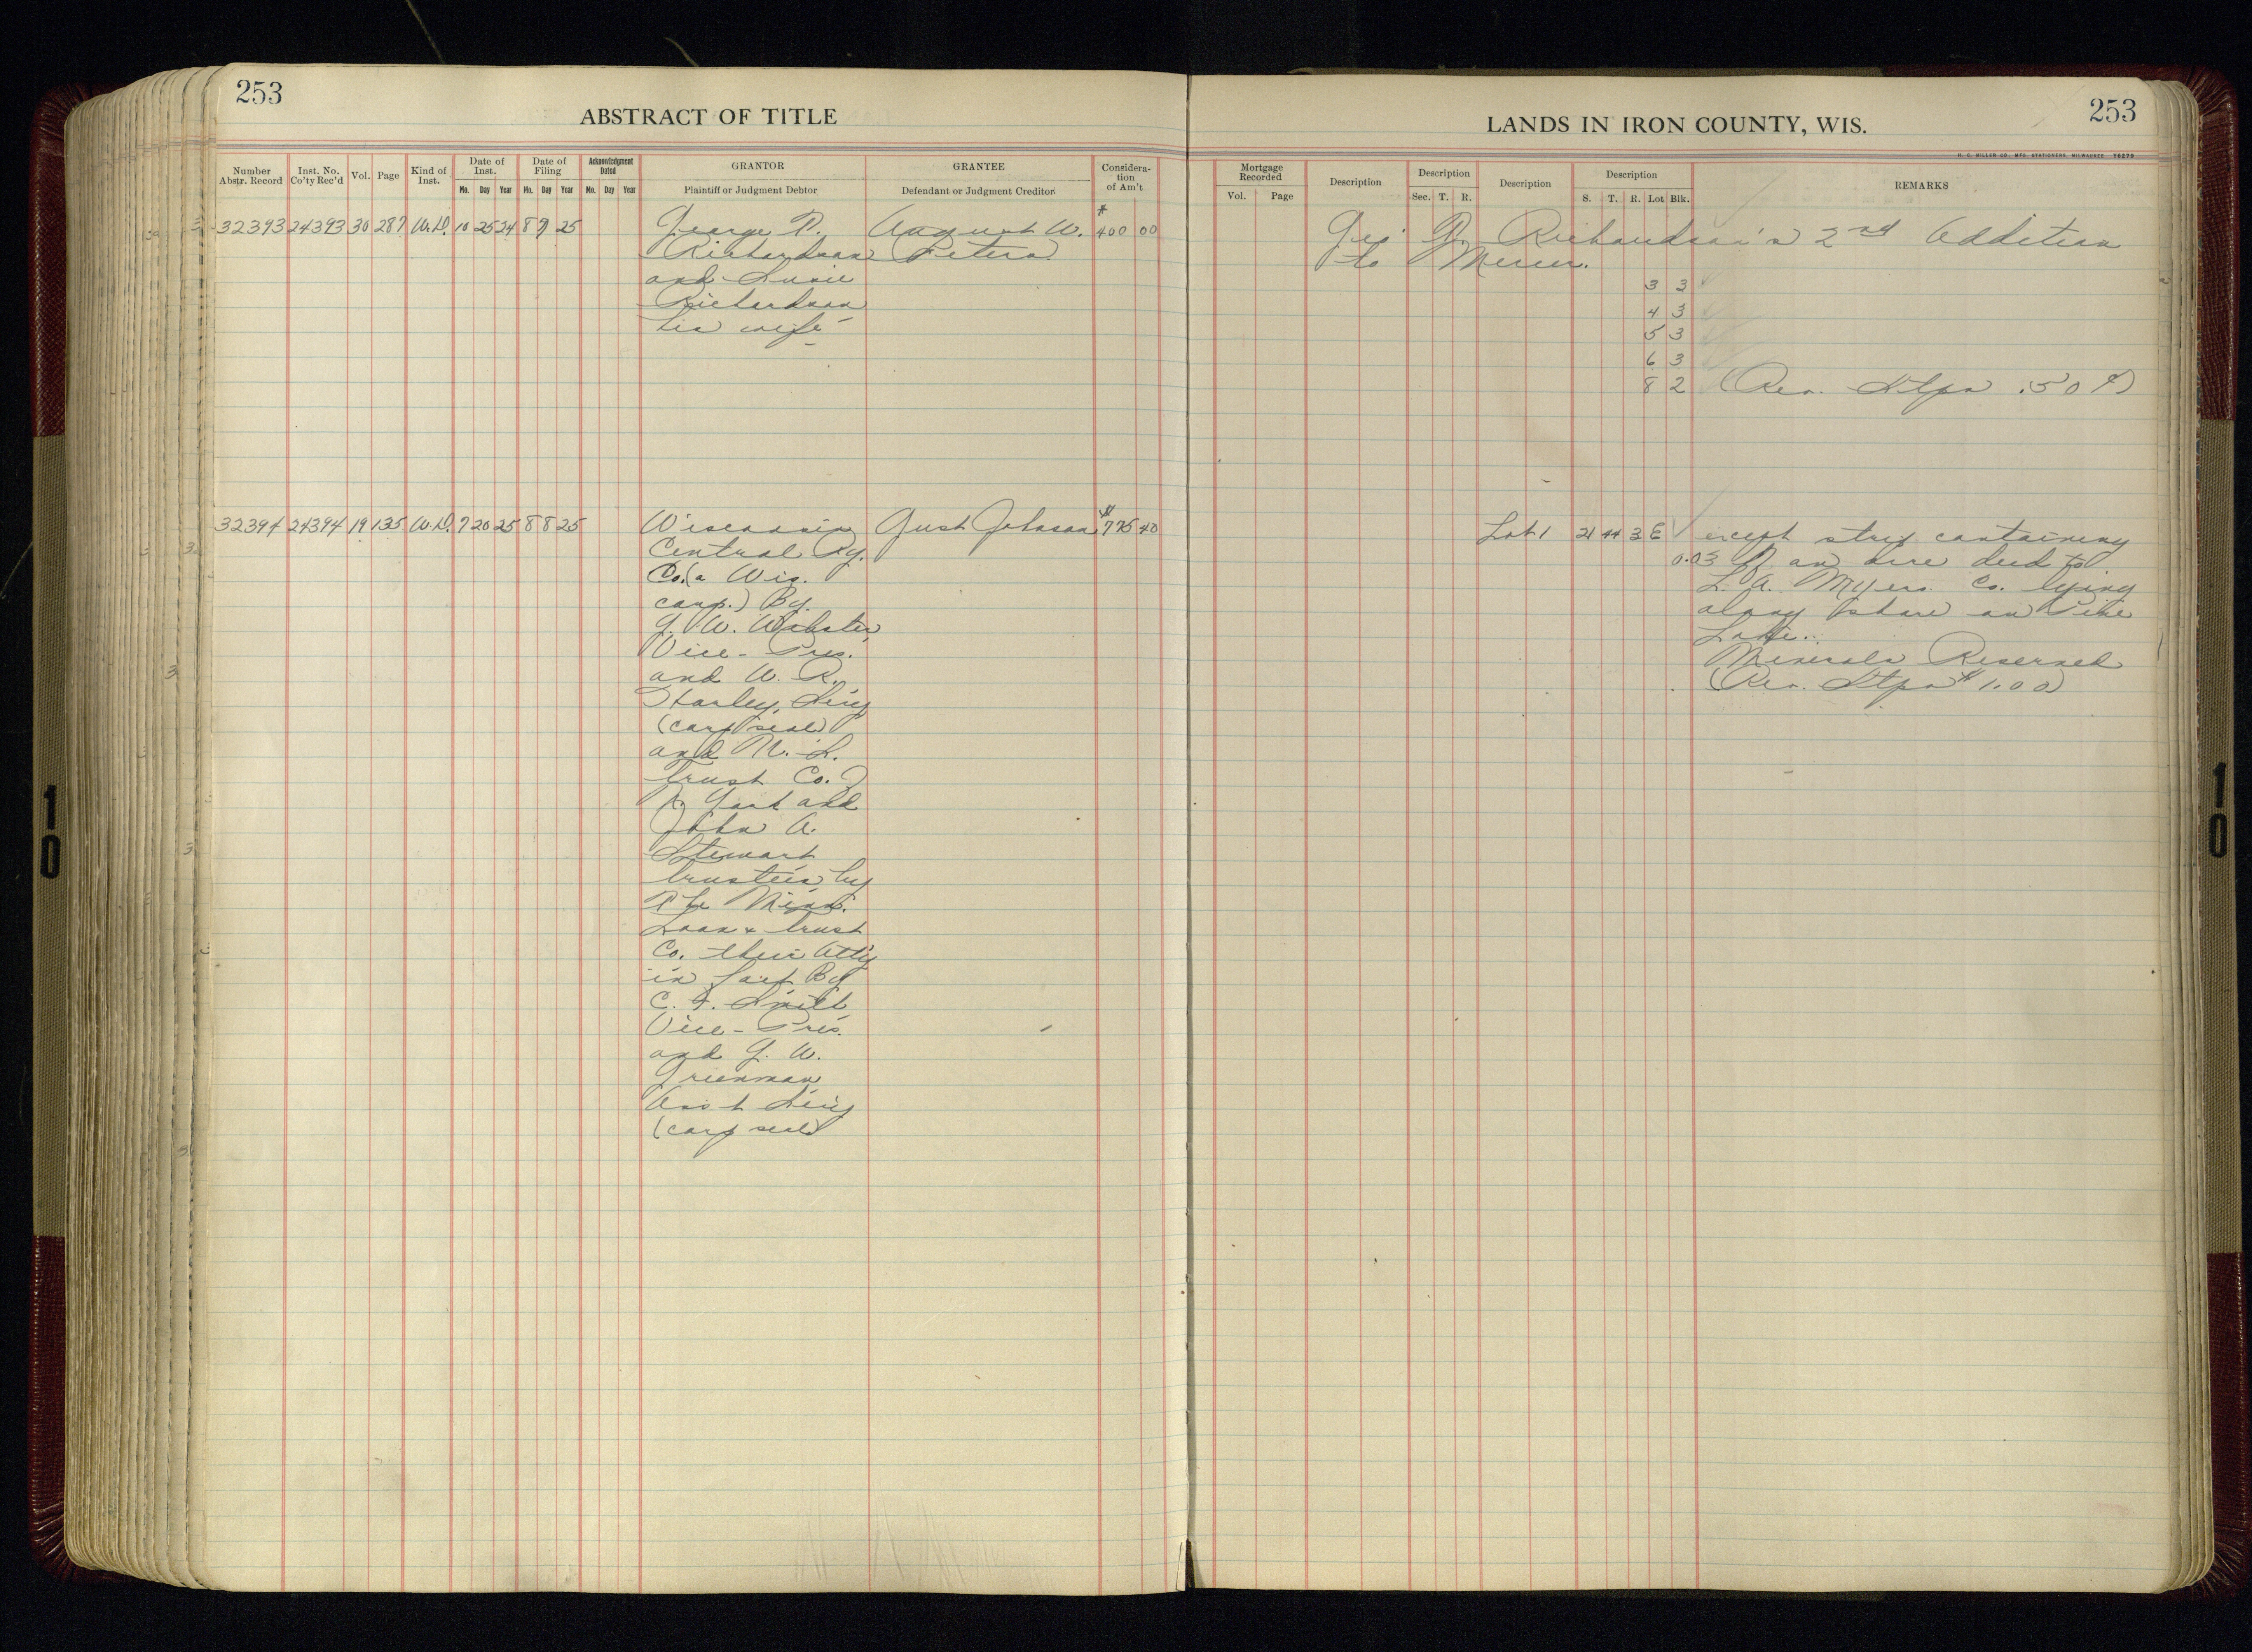 253
ABSTRACT OF TITLE
Number Abstr. Record
Inst. No. Co'ty Rec'd
Vol.
Page
Kind of Inst.
Date of Inst.
Mo. Day Year
Date of Filing
Mo. Day Year
Acknowledgment Dated
Mo. Day Year
GRANTOR
Plaintiff or Judgment Debtor
GRANTEE
Defendant or Judgment Creditor
Considera-
tion
of Am't
32393 24393 30 287 W.D. 10 25 24 8 7 25 George R. August W. $400 00
Richardson Peters
and Susie
Richardson
his wife
32394 24394 19 135 W.D. 7 20 25 8 8 25 Wisconsin Gust Johnson $775 40
Central Ry.
Co. (a Wis.
corp.) By
G. W. Webster
Vice-Pres.
and W. R.
Harley, Secy
(corp seal)
and U.S.
Trust Co.
N. York and
John A.
Stewart
trustees by
The Minn.
Loan & trust
Co. their Atty
in fact By
C. F. Smith
Vice-Pres.
and G. W.
Grienman
Ass't Secy
(corp seal)
253
LANDS IN IRON COUNTY, WIS.
H. C. MILLER CO., MFG. STATIONERS, MILWAUKEE Y6279
Mortgage Recorded
Vol. Page
Description
Description
Sec. T. R.
Description
Description
S. T. R. Lot Blk.
REMARKS
Geo R. Richardson's 2nd Addition
to Mercer.
3 3
4 3
5 3
6 3
8 2 (Rev. Stps .50¢)
Lot 1 21 44 3 E except strip containing
0.03 of an acre deed to
L. A. Myers Co. lying
along shore on Pine
Lake.
Minerals Reserved
(Rev. Stps $1.00)
10
10